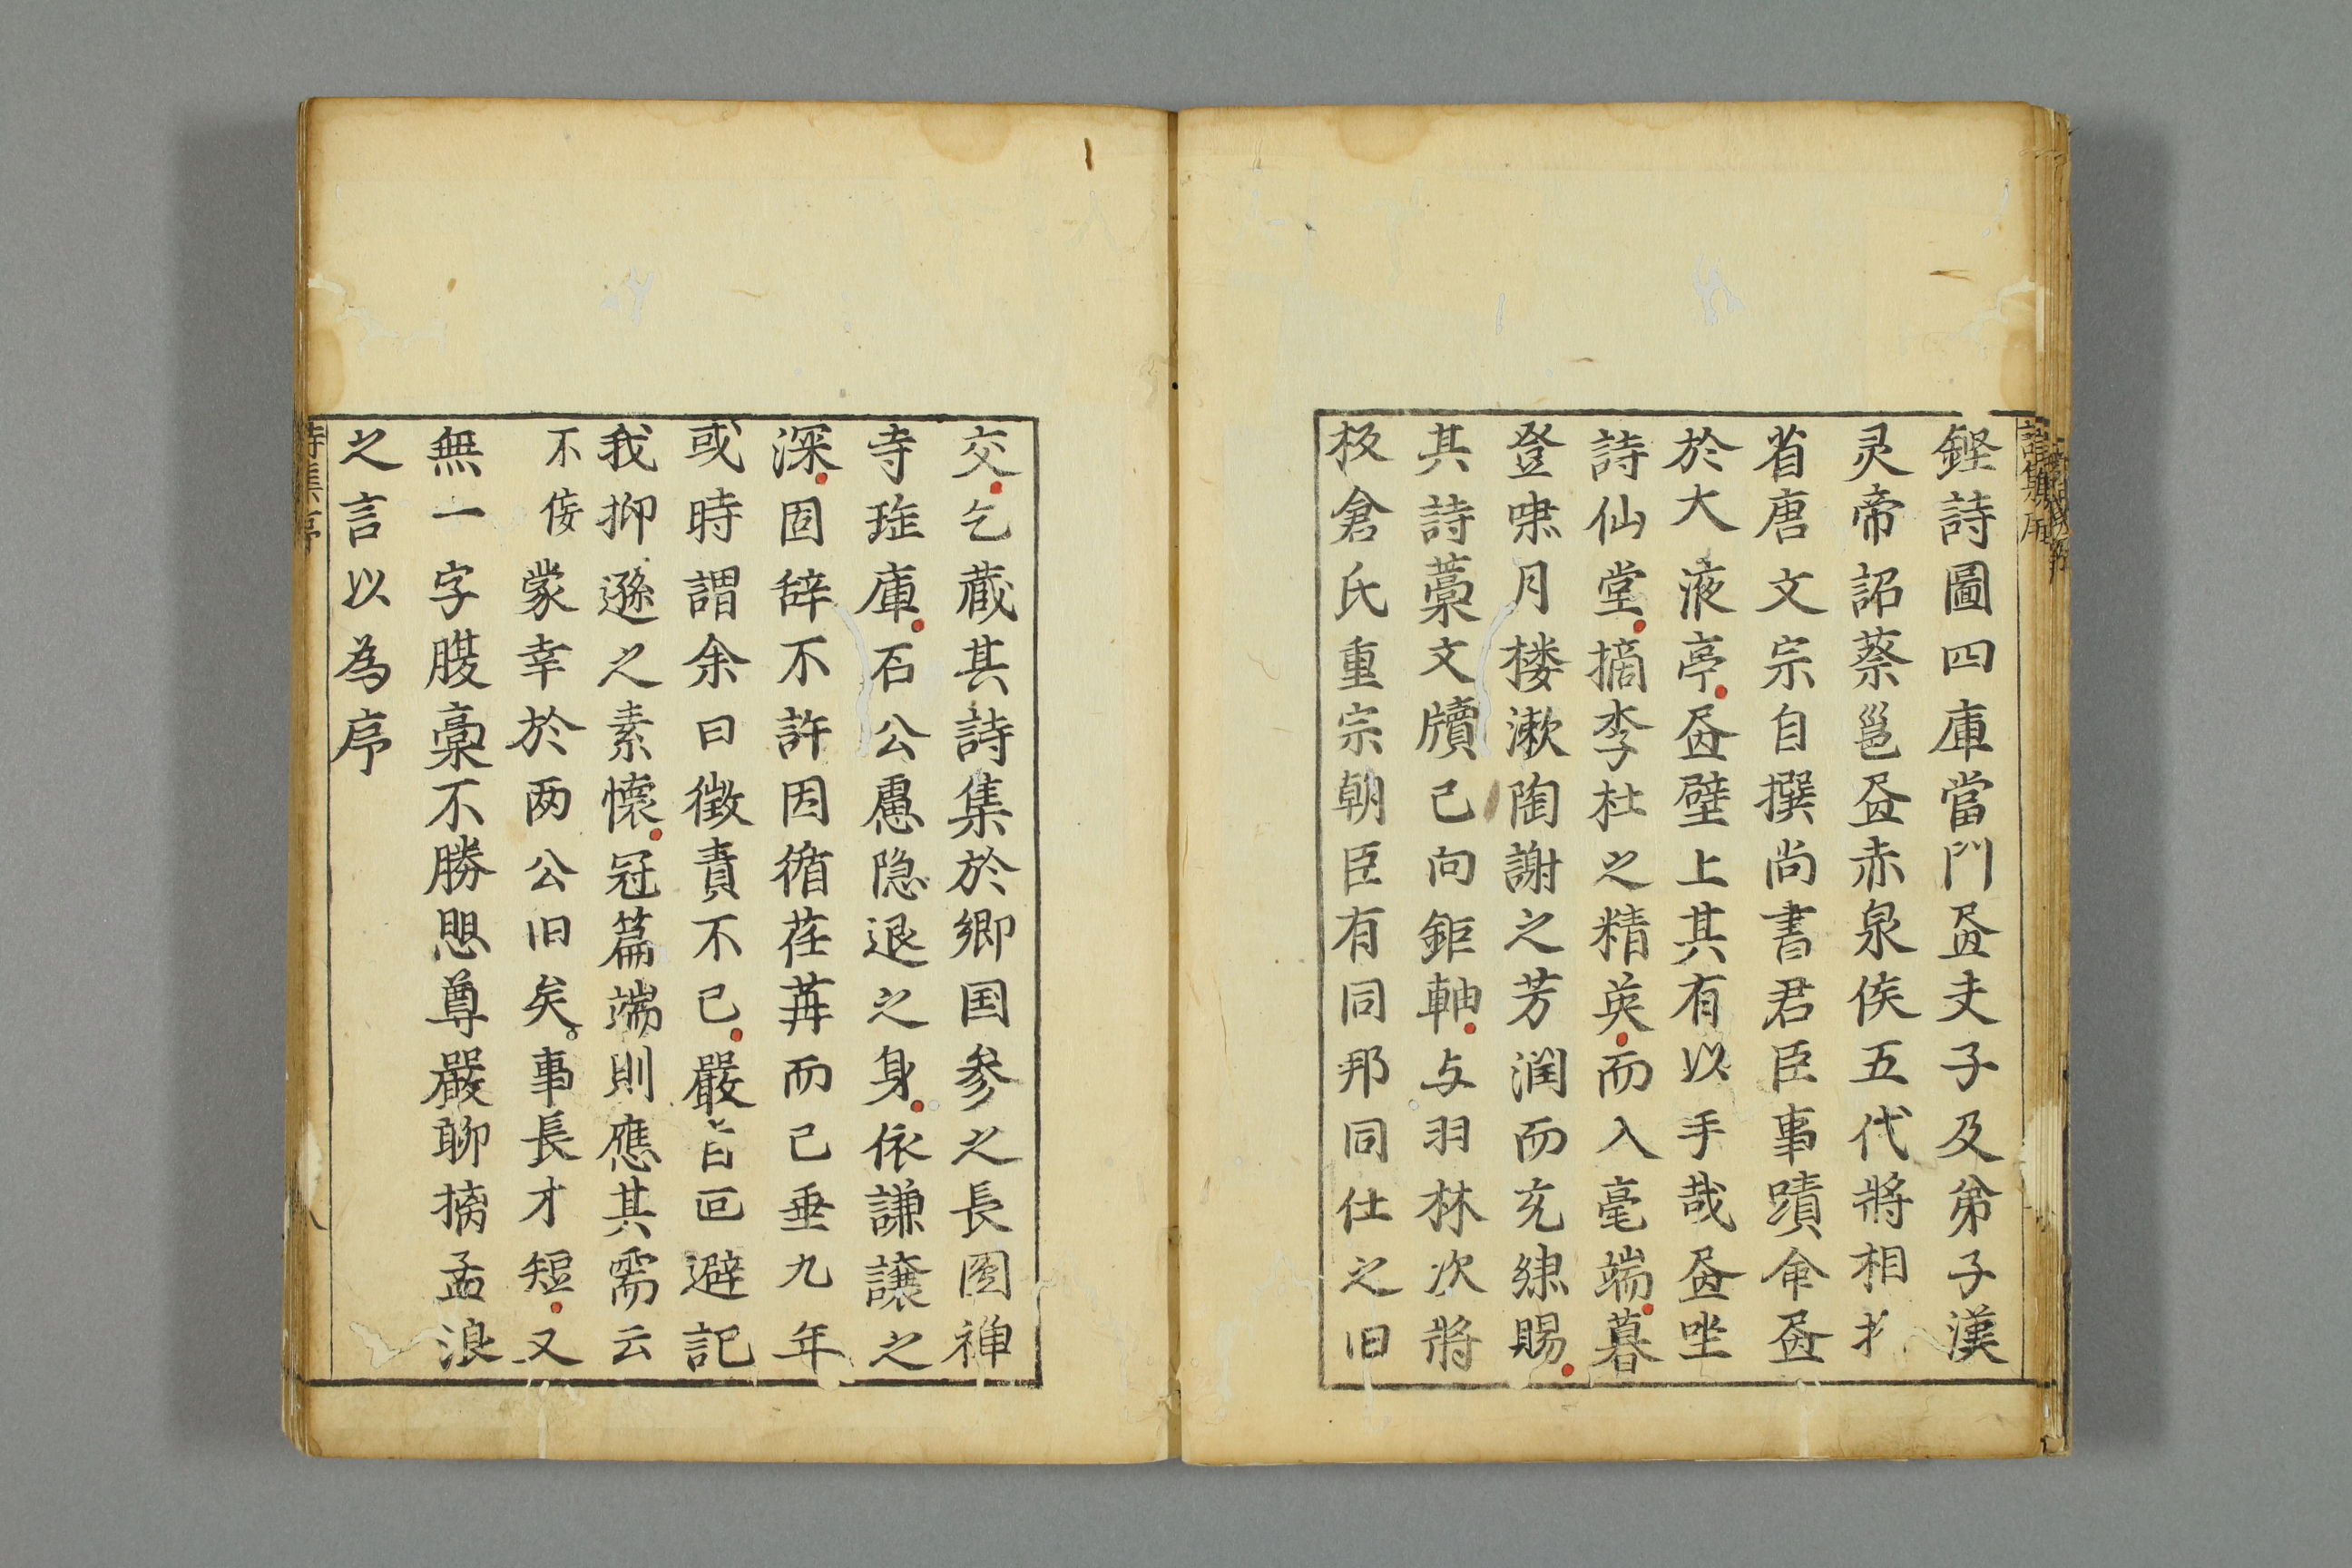 鏗詩圖四庫當門昼夫子及弟子漢
灵帝詔蔡邕昼赤泉侯五代將相
省唐文宗自撰尚書君臣事蹟命昼
於大液亭昼壁上其有以手哉昼坐
詩仙堂摘李杜之精英而入毫端暮
登啸月楼漱陶謝之芳潤而充賜
其詩藁文牘已向鉅軸与羽林次將
板倉氏重宗朝臣有同邦同仕之旧
交乞蔵其詩集於鄉国参之長圀禅
寺庫石公慮隐退之身依謙譲之
深固辞不許因循荏苒而已垂九年
或時謂余曰徴責不已嚴旨叵避記
我抑遜之素懷冠篇端則應其需云
不佞蒙幸於两公旧矣事長才短又
無一字腴藁不勝思尊嚴聊摛孟浪
之言以為序
詩集序